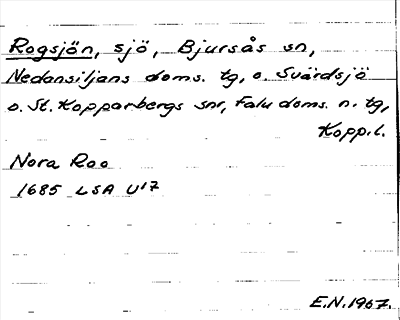 Rogsjön, sjö, Bjursås sn,
Nedansiljans doms. tg, o. Svärdsjö
o. St. Kopparbergs snr, Falu doms. n. tg,
Kopp.l.
Nora Roo
1685 LSA U17
E.N.1967.